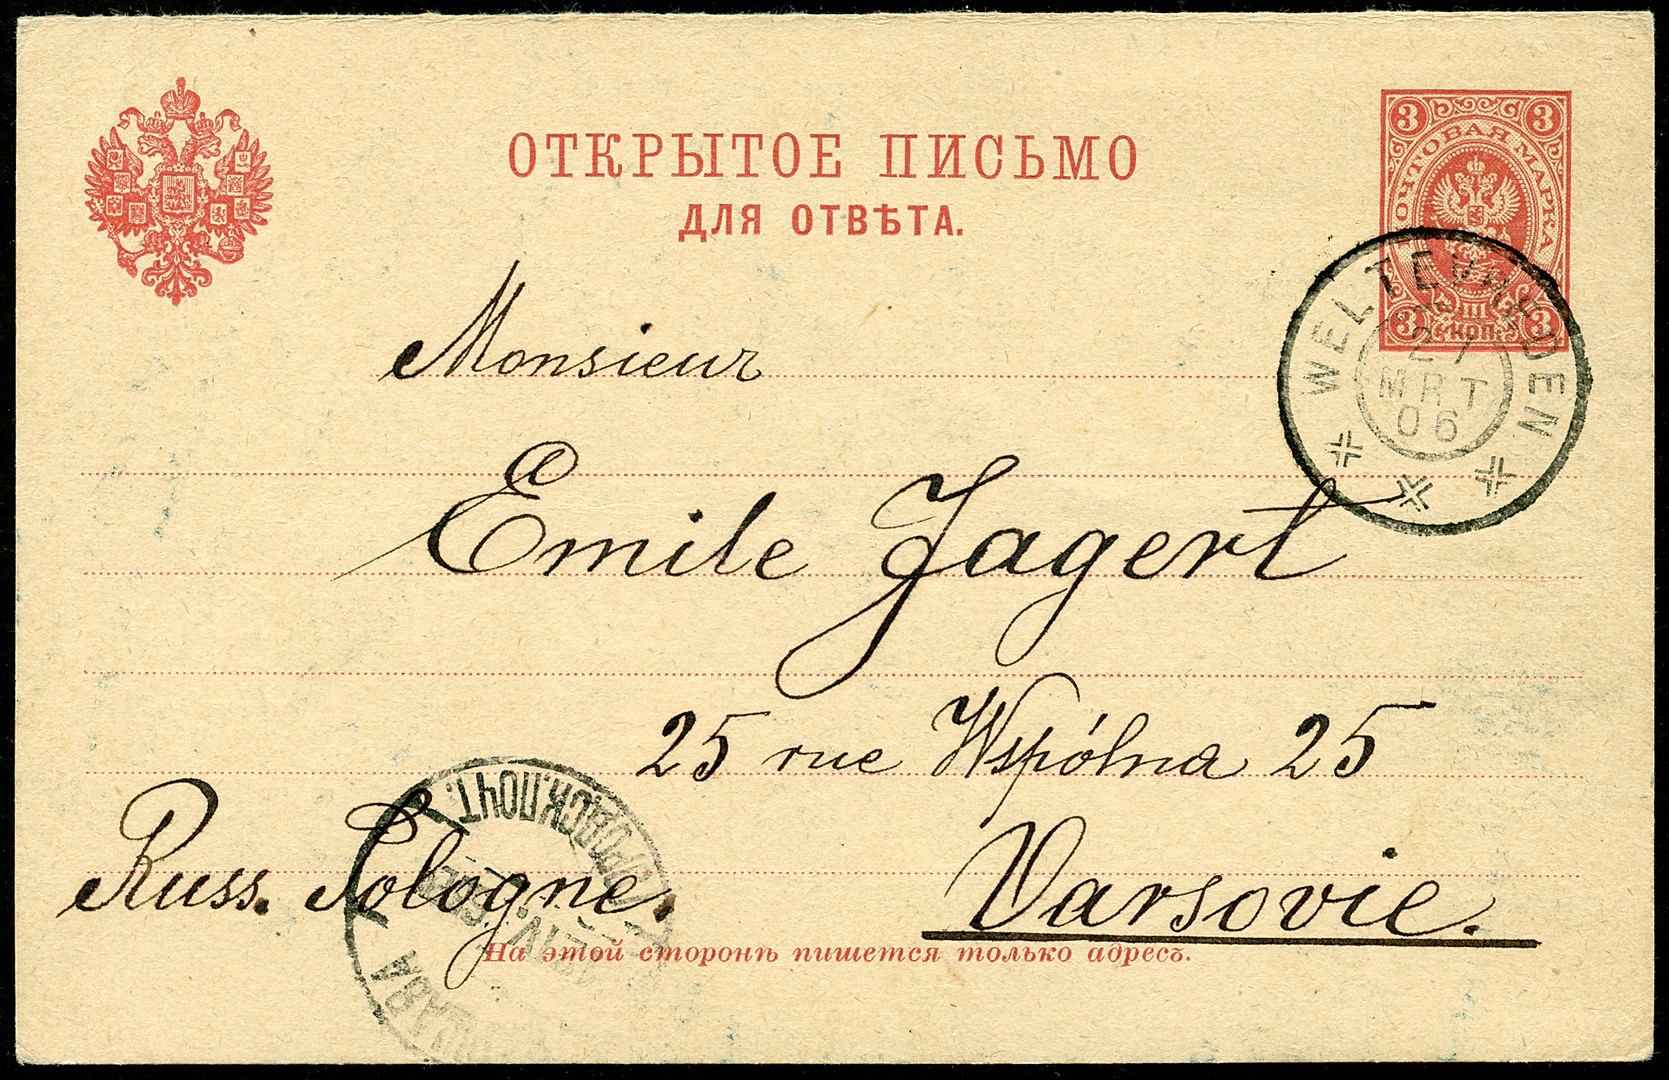 ОТКРЫТОЕ ПИСЬМО
ДЛЯ ОТВѢТА.
3 3
ПОЧТОВАЯ МАРКА
3 III 3
КОП.
WELTEVREDEN
27
MRT
06
Monsieur
Emile Jagert
25 rue Wspólna 25
Varsovie.
Russ. Pologne.
На этой сторонѣ пишется только адресъ.